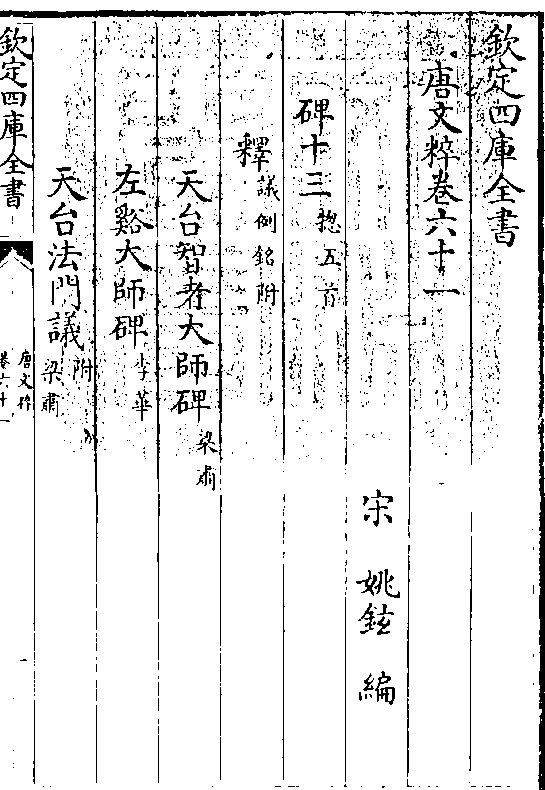 欽定四庫全書
唐文粹卷六十一
宋 姚鉉 編
碑十三 惣五首
釋 議例銘附
天台智者大師碑 梁肅
左谿大師碑 李華
天台法門議 附 梁肅
欽定四庫全書
唐文粹
卷六十一